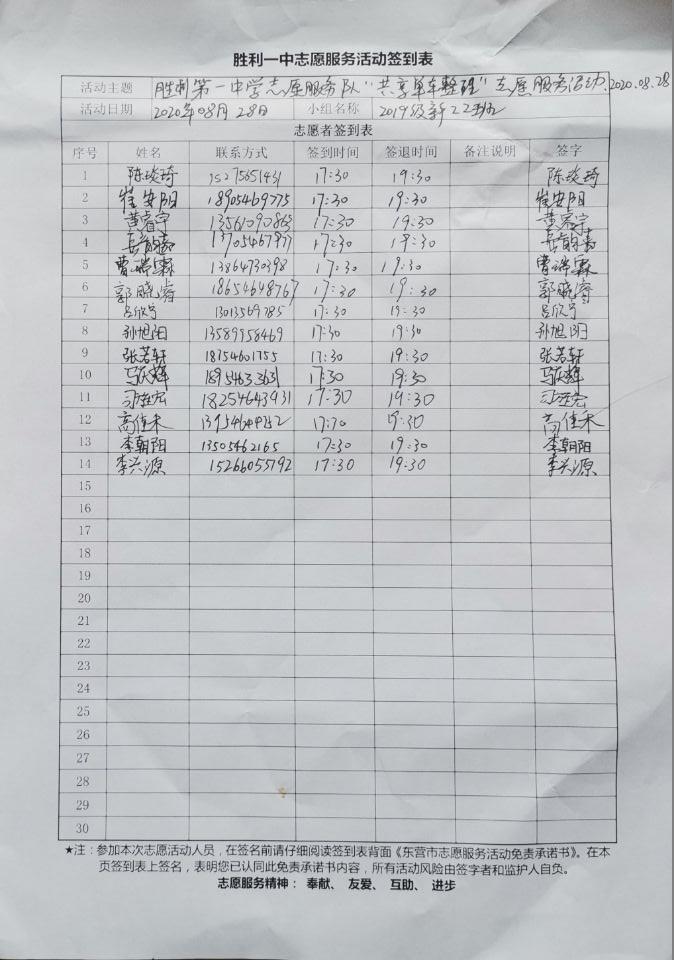 胜利一中志愿服务活动签到表
活动主题 胜利第一中学志愿服务队“共享单车整理”志愿服务活动.2020.08.28
活动日期 2020年08月28日 小组名称 2019级新22班
志愿者签到表
序号 姓名 联系方式 签到时间 签退时间 备注说明 签字
1 陈琰琦 15275651431 17:30 19:30 陈琰琦
2 崔安阳 18905469775 17:30 19:30 崔安阳
3 黄睿宇 13561090863 17:30 19:30 黄睿宇
4 17:30 19:30
5 曹瑞霖 13864730398 17:30 19:30 曹瑞霖
6 郭晓睿 18654648767 17:30 19:30 郭晓睿
7 吕欣宁 13013569785 17:30 19:30 吕欣宁
8 孙旭阳 13589958469 17:30 19:30 孙旭阳
9 张若轩 18754601755 17:30 19:30 张若轩
10 17:30 19:30
11 18254643931 17:30 19:30
12 高佳禾 17:30 19:30 高佳禾
13 李朝阳 13505462165 17:30 19:30 李朝阳
14 李兴源 15266055792 17:30 19:30 李兴源
15
16
17
18
19
20
21
22
23
24
25
26
27
28
29
30
★注：参加本次志愿活动人员，在签名前请仔细阅读签到表背面《东营市志愿服务活动免责承诺书》。在本
页签到表上签名，表明您已认同此免责承诺书内容，所有活动风险由签字者和监护人自负。
志愿服务精神： 奉献、 友爱、 互助、 进步